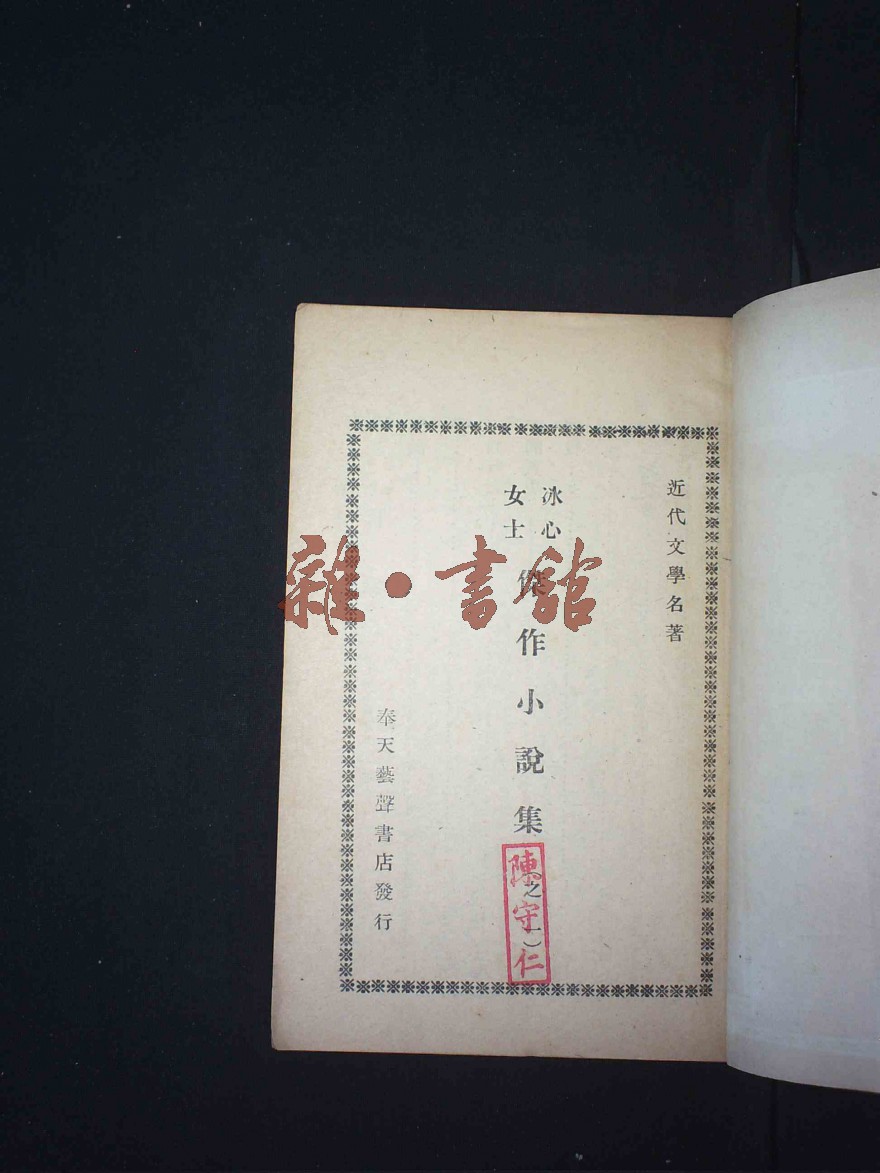 近代文學名著
冰心
女士
傑作小說集（之一）
陳守仁
奉天藝聲書店發行
雜·書館